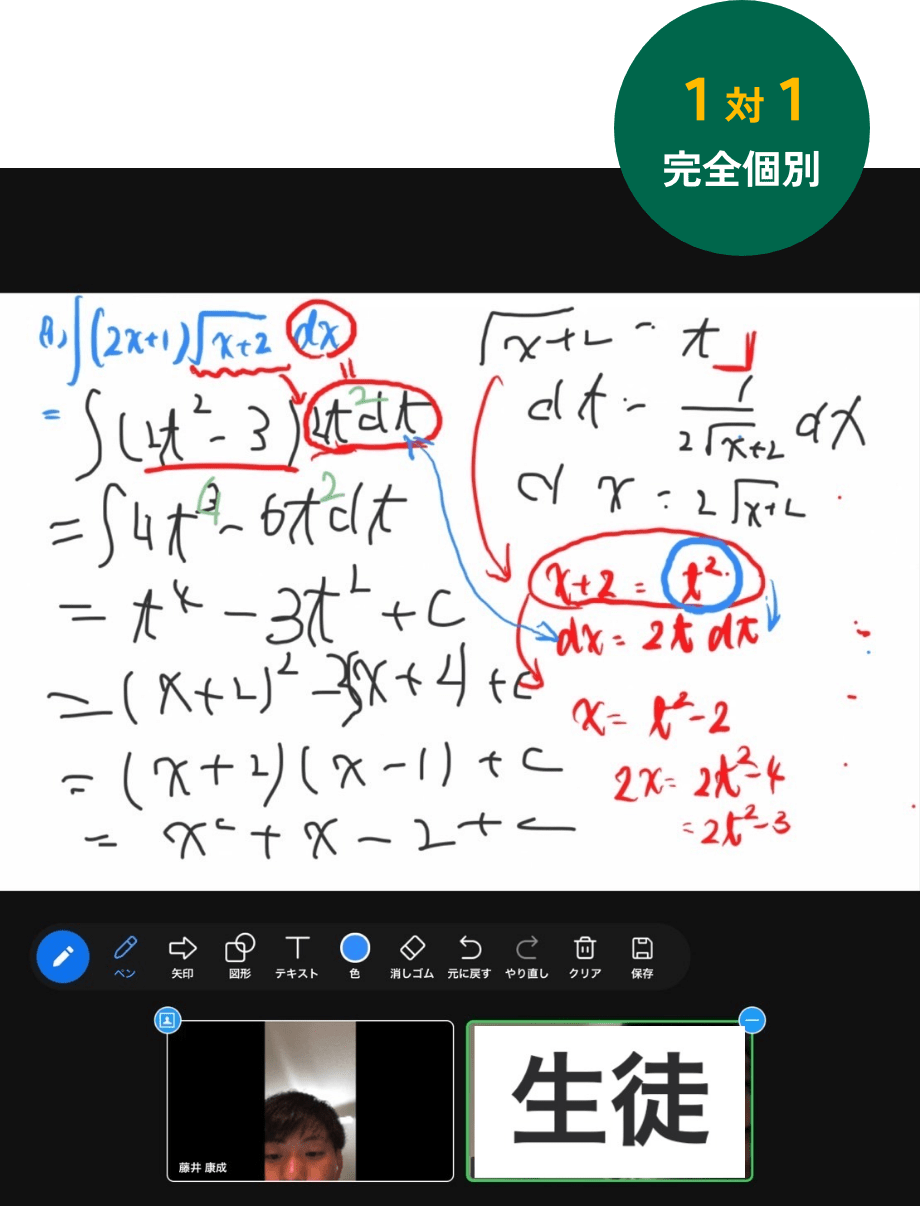 1 対 1
完全個別
A) ∫(2x+1)√(x+2) dx
= ∫(2t² - 3) 2t² dt
= ∫4t⁴ - 6t² dt
= t⁴ - 3t² + C
= (x+2)² - 3(x+4) + C
= (x+2)(x-1) + C
= x² + x - 2 + C
√(x+2) = t
dt = 1/(2√(x+2)) dx
dx = 2√(x+2)
x+2 = t²
dx = 2t dt
x = t² - 2
2x = 2t² - 4
= 2t² - 3
ペン 矢印 図形 テキスト 色 消しゴム 元に戻す やり直し クリア 保存
藤井 康成
生徒